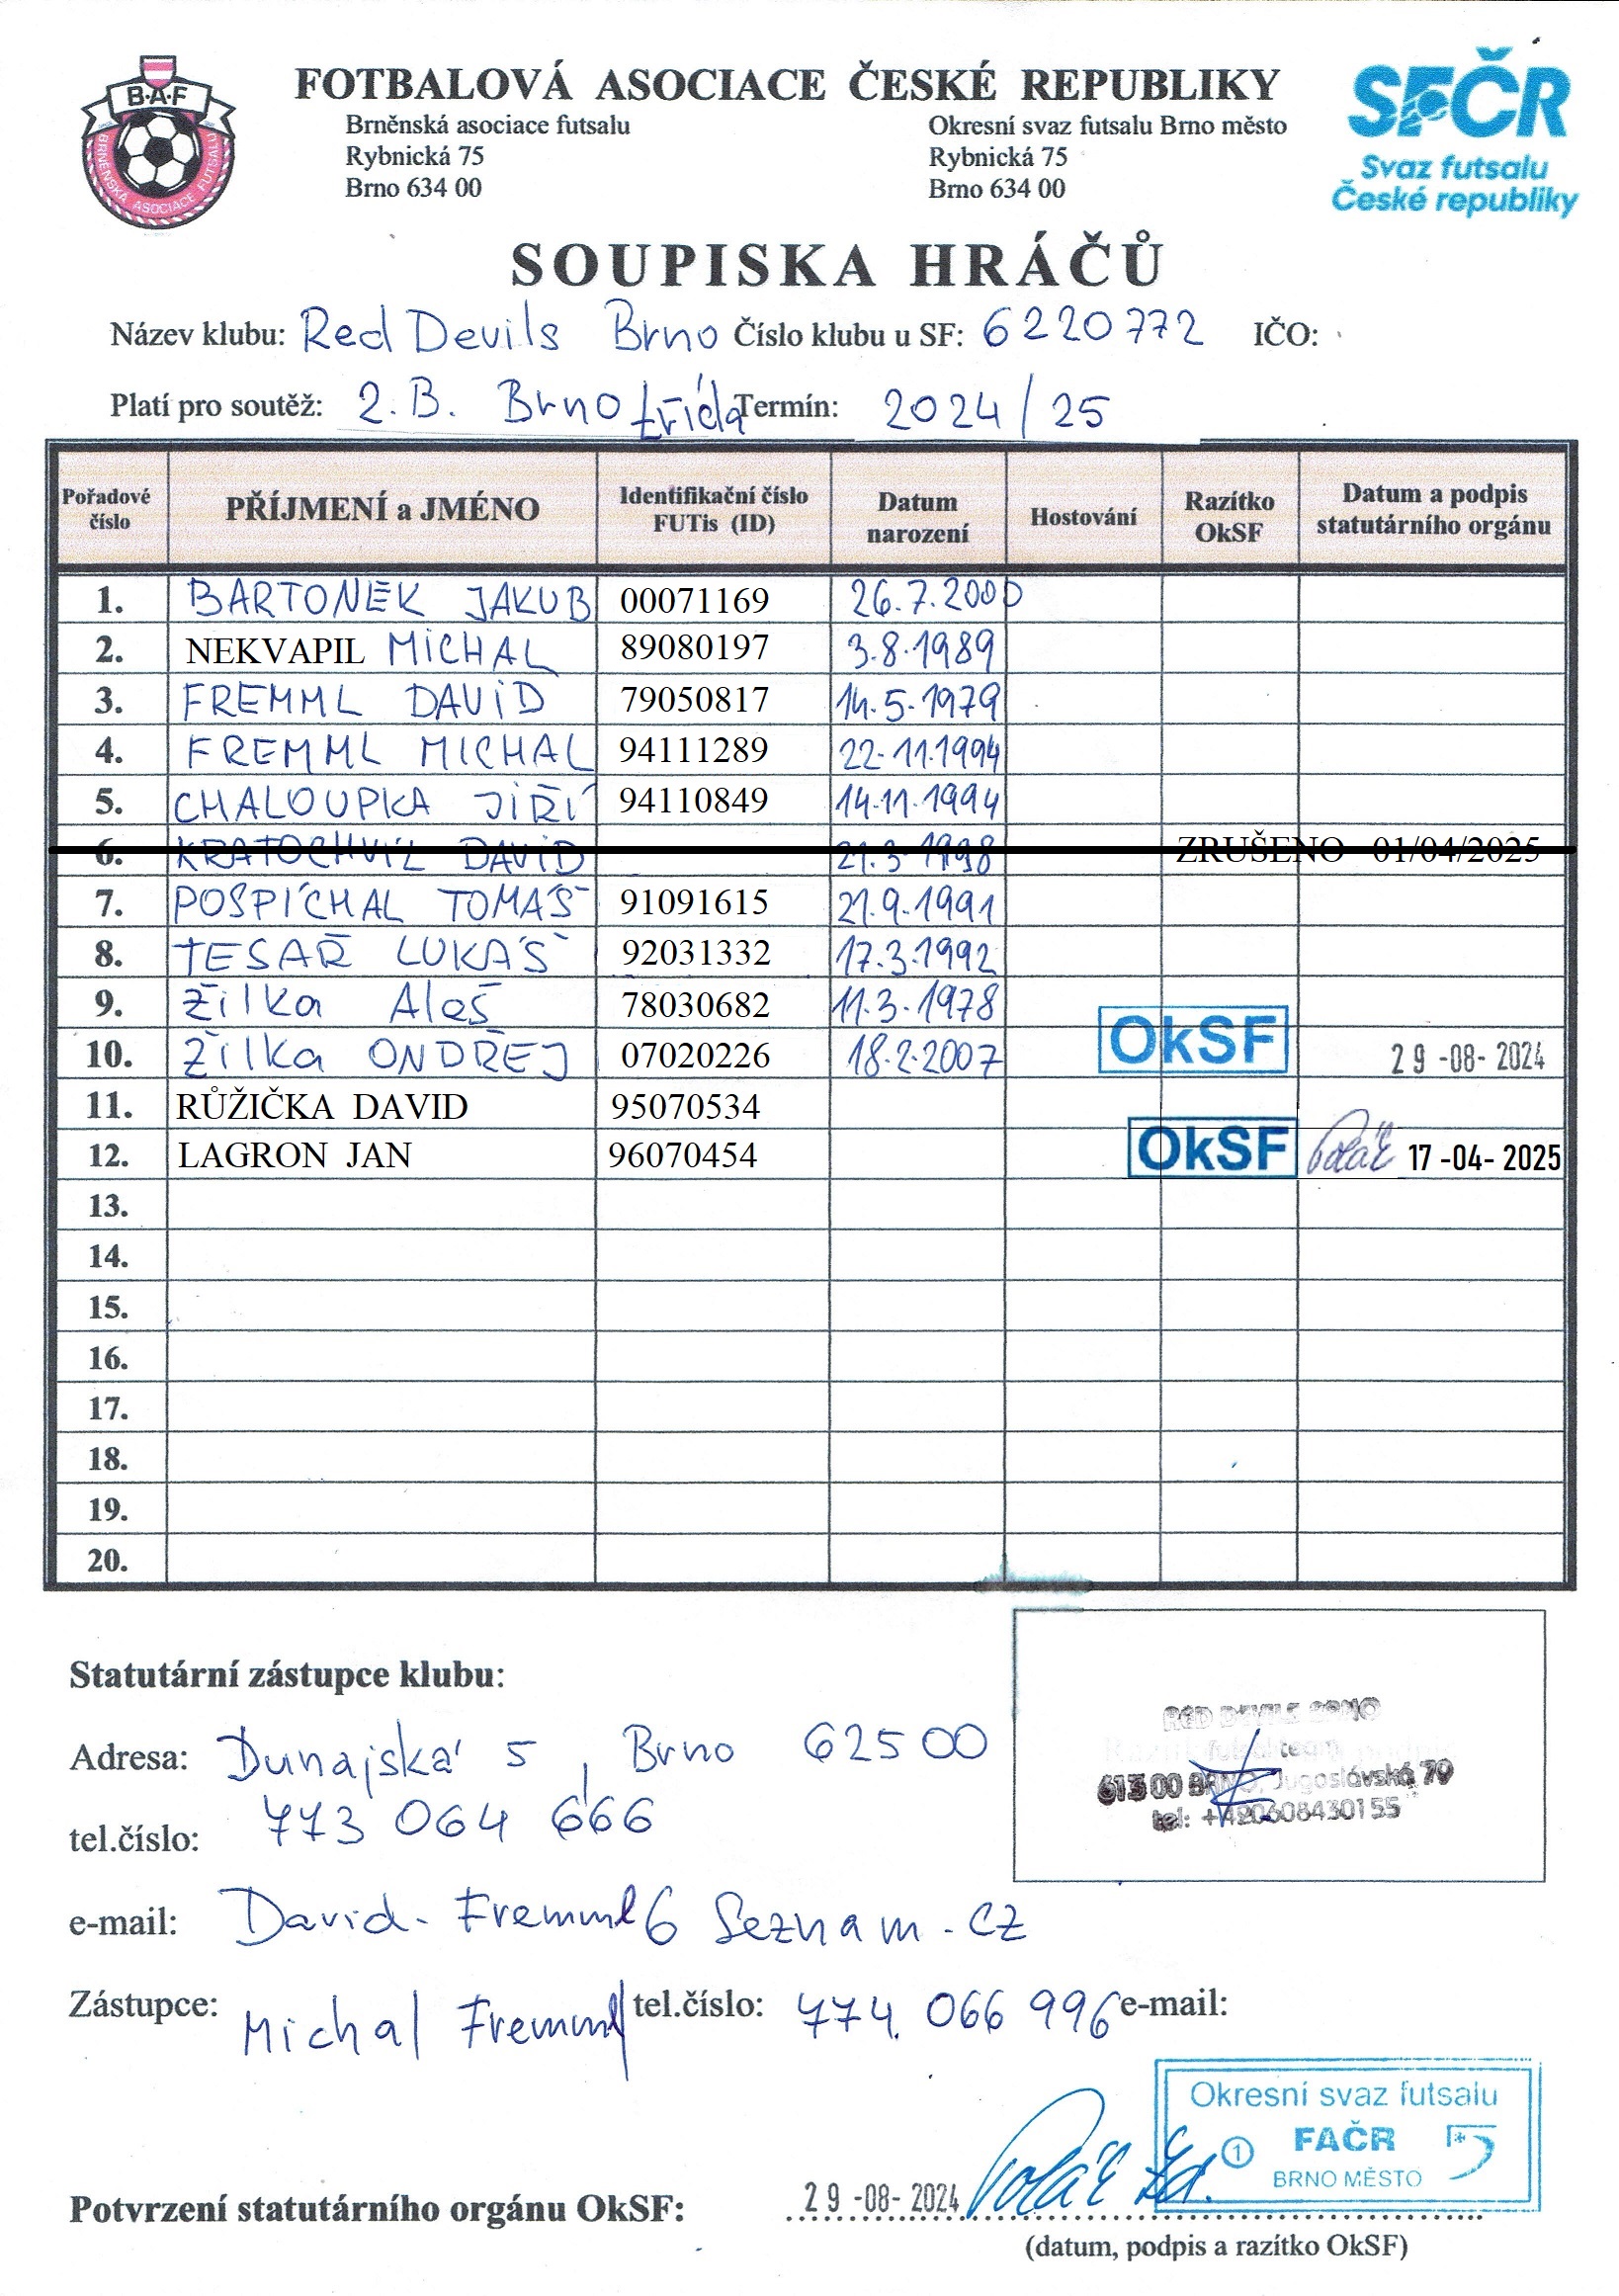 B·A·F
BRNĚNSKÁ ASOCIACE FUTSALU
FOTBALOVÁ ASOCIACE ČESKÉ REPUBLIKY
Brněnská asociace futsalu
Rybnická 75
Brno 634 00
Okresní svaz futsalu Brno město
Rybnická 75
Brno 634 00
SFČR
Svaz futsalu
České republiky
SOUPISKA HRÁČŮ
Název klubu: Red Devils Brno Číslo klubu u SF: 6220772 IČO:
Platí pro soutěž: 2.B. Brno třída Termín: 2024/25
Pořadové číslo PŘÍJMENÍ a JMÉNO Identifikační číslo FUTis (ID) Datum narození Hostování Razítko OkSF Datum a podpis statutárního orgánu
1. BARTONEK JAKUB 00071169 26.7.2000
2. NEKVAPIL MICHAL 89080197 3.8.1989
3. FREMML DAVID 79050817 14.5.1979
4. FREMML MICHAL 94111289 22.11.1994
5. CHALOUPKA JIŘÍ 94110849 14.11.1994
6. KRATOCHVÍL DAVID 21.3.1998 ZRUŠENO 01/04/2025
7. POSPÍCHAL TOMÁŠ 91091615 21.9.1991
8. TESAŘ LUKÁŠ 92031332 17.3.1992
9. Žilka Aleš 78030682 11.3.1978
10. Žilka ONDŘEJ 07020226 18.2.2007 OkSF 29-08-2024
11. RŮŽIČKA DAVID 95070534
12. LAGRON JAN 96070454 OkSF Polář 17-04-2025
13.
14.
15.
16.
17.
18.
19.
20.
Statutární zástupce klubu:
Adresa: Dunajská 5, Brno 62500
tel.číslo: 773 064 666
e-mail: David.Fremml6 Seznam.cz
Zástupce: Michal Fremml tel.číslo: 774 066 996 e-mail:
RED DEVILS BRNO
futsal team
613 00 BRNO, Jugoslávská 79
tel: +420608430155
Okresní svaz futsalu
1 FAČR
BRNO MĚSTO
Potvrzení statutárního orgánu OkSF: 29-08-2024 Polář Zd.
(datum, podpis a razítko OkSF)